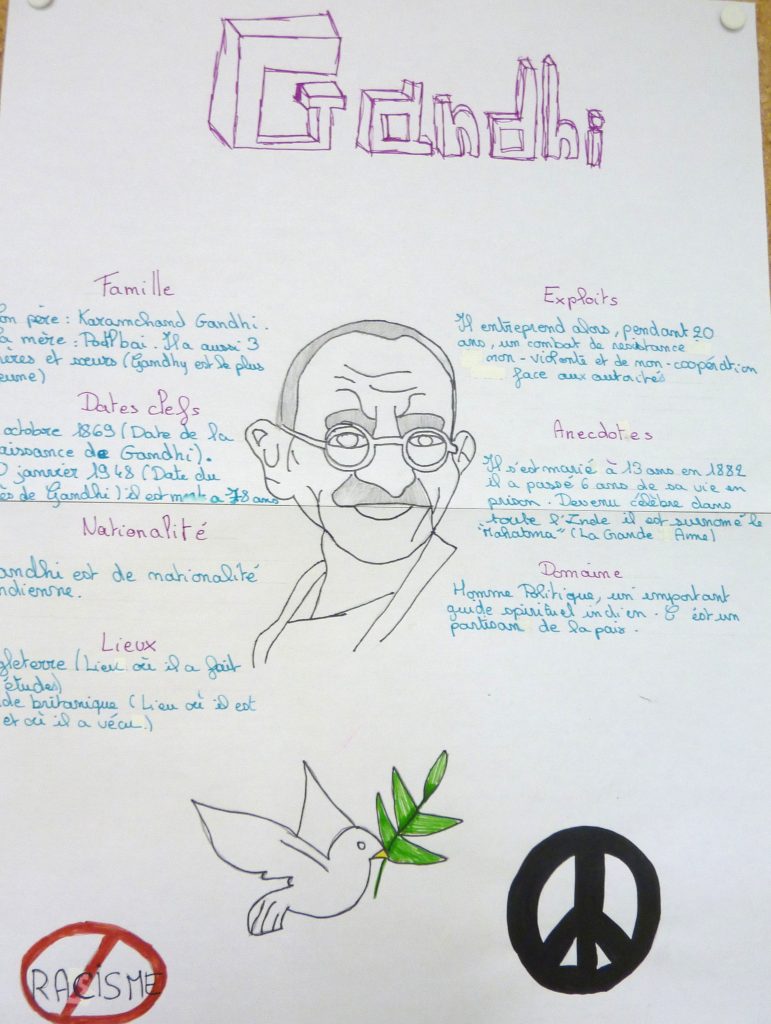 Gandhi
Famille
on père : Karamchand Gandhi.
a mère : Poutlbai. Il a aussi 3
ères et sœurs (Gandhy est le plus
eune)
Dates clefs
octobre 1869 (Date de la
aissance de Gandhi).
0 janvier 1948 (Date du
ès de Gandhi) il est mort a 78 ans
Nationalité
andhi est de nationalité
ndienne.
Lieux
gleterre (Lieu où il a fait
études)
de britanique (Lieu où il est
et où il a vécu.)
Exploits
Il entreprend alors, pendant 20
ans, un combat de resistance
non-violente et de non-coopération
face aux autorités
Anecdotes
Il s'est marié à 13 ans en 1882
il a passé 6 ans de sa vie en
prison. Devenu célèbre dans
toute l'Inde il est surnomé le
"Mahatma" (La Grande Ame)
Domaine
Homme Politique, un important
guide spirituel indien. C'est un
partisan de la paix.
RACISME